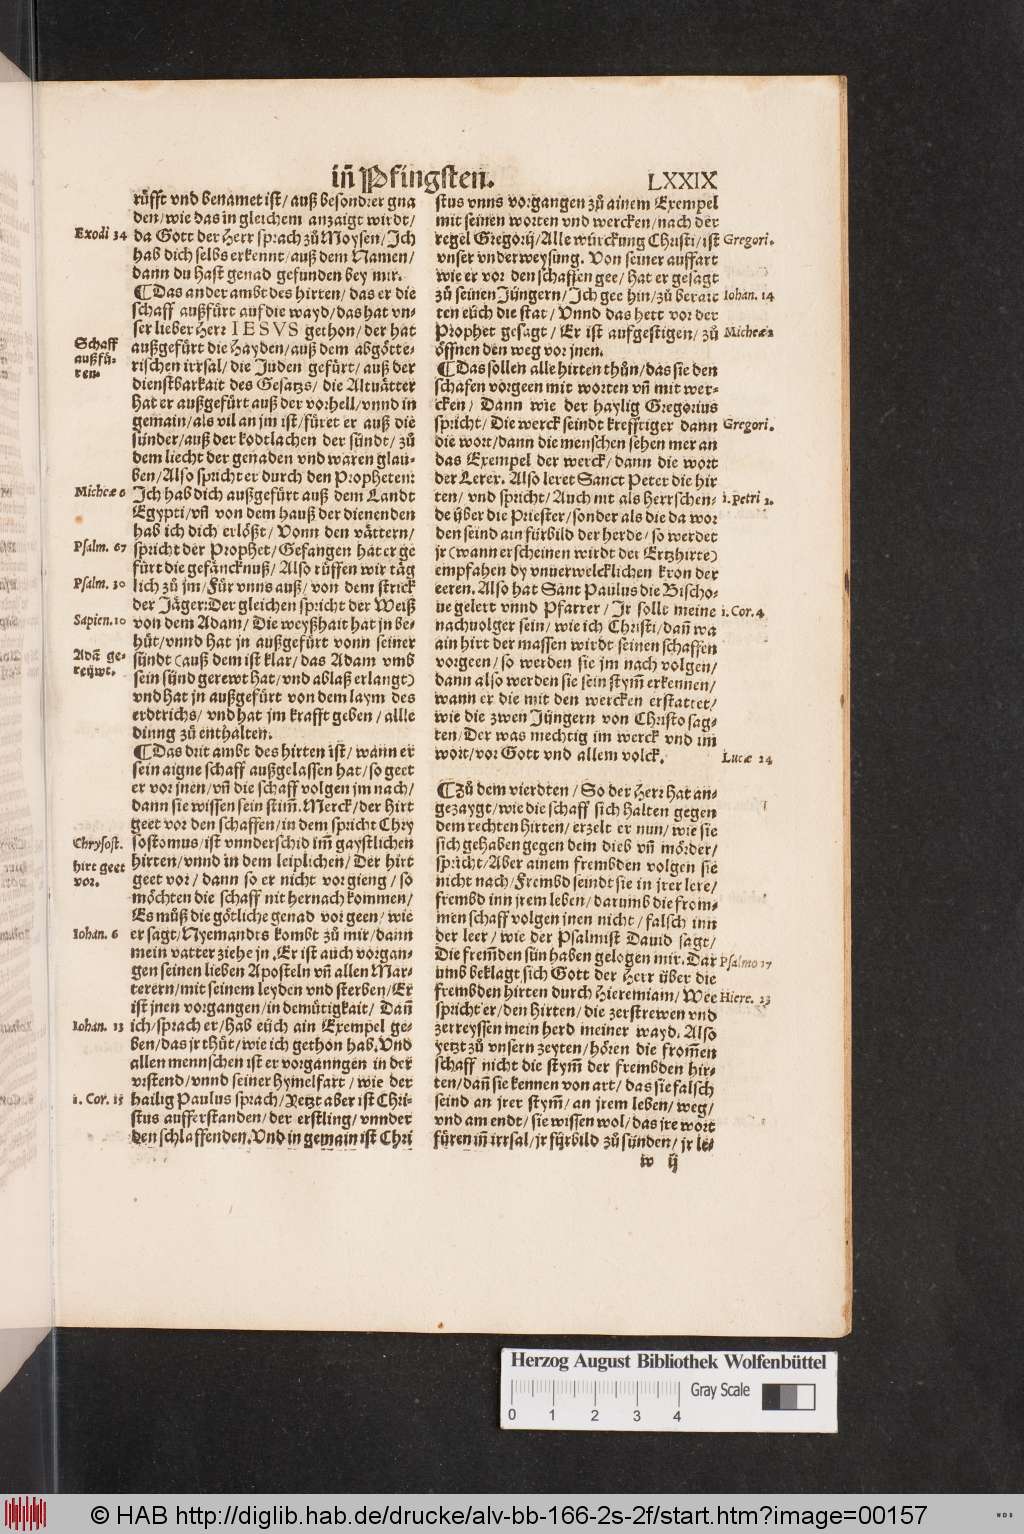 in̄ Pfingsten.
LXXIX
rüfft vnd benamet ist/ auß besondrer gna
den/ wie das in gleichem anzaigt wirdt/
Exodi 34
da Gott der Herr sprach zů Moysen/ Ich
hab dich selbs erkennt/ auß dem Namen/
dann du hast genad gefunden bey mir.
¶ Das ander ambt des hirten/ das er die
schaff außfürt auf die wayd/ das hat vn-
ser lieber Herr IESVS gethon/ der hat
Schaff
außfü-
ren.
außgefürt die Hayden/ auß dem abgötte-
rischen irrsal/ die Juden gefürt/ auß der
dienstbarkait des Gesatzs/ die Altuätter
hat er außgefürt auß der vorhell/ vnnd in
gemain/ als vil an jm ist/ füret er auß die
sünder/ auß der kodtlachen der sündt/ zů
dem liecht der genaden vnd waren glau-
ben/ Also spricht er durch den Propheten:
Micheæ 6
Ich hab dich außgefürt auß dem Landt
Egypti/ vn̄ von dem hauß der dienenden
hab ich dich erlößt/ Vonn den vättern/
Psalm. 67
spricht der Prophet/ Gefangen hat er ge
fürt die gefäncknuß/ Also rüffen wir täg
Psalm. 30
lich zů jm/ Für vnns auß/ von dem strick
der Jäger: Der gleichen spricht der Weiß
Sapien. 10
von dem Adam/ Die weyßhait hat jn be-
hüt/ vnnd hat jn außgefürt vonn seiner
Adā ge-
reüwt.
sündt (auß dem ist klar/ das Adam vmb
sein sünd gerewt hat/ vnd ablaß erlangt)
vnd hat jn außgefürt von dem laym des
erdtrichs/ vnd hat jm krafft geben/ allle
dinng zů enthalten.
¶ Das drit ambt des hirten ist/ wann er
sein aigne schaff außgelassen hat/ so geet
er vor jnen/ vn̄ die schaff volgen jm nach/
dann sie wissen sein stim̄. Merck/ der hirt
geet vor den schaffen/ in dem spricht Chry
Chrysost.
sostomus/ ist vnnderschid im̄ gaystlichen
hirt geet
vor.
hirten/ vnnd in dem leiplichen/ Der hirt
geet vor/ dann so er nicht vor gieng/ so
möchten die schaff nit hernach kommen/
Es můß die götliche genad vor geen/ wie
Iohan. 6
er sagt/ Nyemandts kombt zů mir/ dann
mein vatter ziehe jn. Er ist auch vorgan-
gen seinen lieben Aposteln vn̄ allen Mar-
terern/ mit seinem leyden vnd sterben/ Er
ist jnen vorgangen/ in demütigkait/ Dan̄
Iohan. 13
ich/ sprach er/ hab eüch ain Exempel ge-
ben/ das jr thüt/ wie ich gethon hab. Vnd
allen mennschen ist er vorganngen in der
vrstend/ vnnd seiner hymelfart/ wie der
1. Cor. 15
hailig Paulus sprach/ Yetzt aber ist Chri-
stus aufferstanden/ der erstling/ vnnder
den schlaffenden. Vnd in gemain ist Chri
stus vnns vorgangen zů ainem Exempel
mit seinen worten vnd wercken/ nach der
regel Gregorij/ Alle würckung Christi/ ist
Gregori.
vnser vnderweysung. Von seiner auffart
wie er vor den schaffen gee/ hat er gesagt
zů seinen Jüngern/ Ich gee hin/ zů berait
Iohan. 14
ten eüch die stat/ Vnnd das hett vor der
Prophet gesagt/ Er ist aufgestigen/ zů
Micheæ 2
öffnen den weg vor jnen.
¶ Das sollen alle hirten thůn/ das sie den
schafen vorgeen mit worten vn̄ mit wer-
cken/ Dann wie der haylig Gregorius
spricht/ Die werck seindt krefftiger dann
Gregori.
die wort/ dann die menschen sehen mer an
das Exempel der werck/ dann die wort
der Lerer. Also leret Sanct Peter die hir
ten/ vnd spricht/ Auch nit als Herrschen-
1. Petri 2.
de über die Priester/ sonder als die da wor
den seind ain fürbild der herde/ so werdet
jr (wann erscheinen wirdt der Ertzhirte)
empfahen dy vnuerwelcklichen kron der
eeren. Also hat Sant Paulus die Bischo-
ue gelert vnnd Pfarrer/ Ir solle meine
1. Cor. 4
nachuolger sein/ wie ich Christi/ dan̄ wa
ain hirt der massen wirdt seinen schaffen
vorgeen/ so werden sie jm nach volgen/
dann also werden sie sein stym̄ erkennen/
wann er die mit den wercken erstattet/
wie die zwen Jüngern von Christo sag-
ten/ Der was mechtig im werck vnd im
wort/ vor Gott vnd allem volck.
Lucæ 24
¶ Zů dem vierdten/ So der Herr hat an-
gezaygt/ wie die schaff sich halten gegen
dem rechten hirten/ erzelt er nun/ wie sie
sich gehaben gegen dem dieb vn̄ mörder/
spricht/ Aber ainem frembden volgen sie
nicht nach/ Frembd seindt sie in jrer lere/
frembd inn jrem leben/ darumb die from-
men schaff volgen jnen nicht/ falsch inn
der leer/ wie der Psalmist Dauid sagt/
Die frem̄den sün haben gelogen mir. Dar
Psalmo 17
umb beklagt sich Gott der Herr über die
frembden hirten durch Hieremiam/ Wee
Hiere. 23
spricht er/ den hirten/ die zerstrewen vnd
zerreyssen mein herd meiner wayd. Also
yetzt zů vnsern zeyten/ hören die from̄en
schaff nicht die stym̄ der frembden hir-
ten/ dan̄ sie kennen von art/ das sie falsch
seind an jrer stym̄/ an jrem leben/ weg/
vnd am endt/ sie wissen wol/ das jre wort
füren in̄ irrsal/ jr fürbild zů sünden/ jr le-
w ij
Herzog August Bibliothek Wolfenbüttel
Gray Scale
0 1 2 3 4
© HAB http://diglib.hab.de/drucke/alv-bb-166-2s-2f/start.htm?image=00157